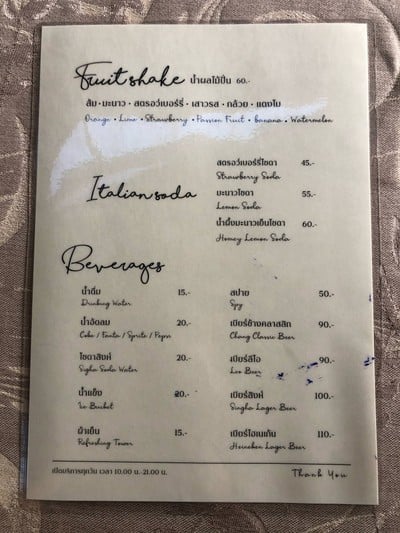 Fruit shake น้ำผลไม้ปั่น 60.-
ส้ม • มะนาว • สตรอว์เบอร์รี่ • เสาวรส • กล้วย • แตงโม
Orange • Lime • Strawberry • Passion Fruit • Banana • Watermelon
สตรอว์เบอร์รี่โซดา 45.-
Strawberry Soda
Italian soda
มะนาวโซดา 55.-
Lemon Soda
น้ำผึ้งมะนาวเย็นโซดา 60.-
Honey Lemon Soda
Beverages
น้ำดื่ม 15.-
Drinking Water
น้ำอัดลม 20.-
Coke / Fanta / Sprite / Pepsi
โซดาสิงห์ 20.-
Singha Soda Water
น้ำแข็ง 20.-
Ice Bucket
ผ้าเย็น 15.-
Refreshing Towel
สปาย 50.-
Spy
เบียร์ช้างคลาสสิก 90.-
Chang Classic Beer
เบียร์ลีโอ 90.-
Leo Beer
เบียร์สิงห์ 100.-
Singha Lager Beer
เบียร์ไฮเนเก้น 110.-
Heineken Lager Beer
เปิดบริการทุกวัน เวลา 10.00 น.-21.00 น.
Thank You